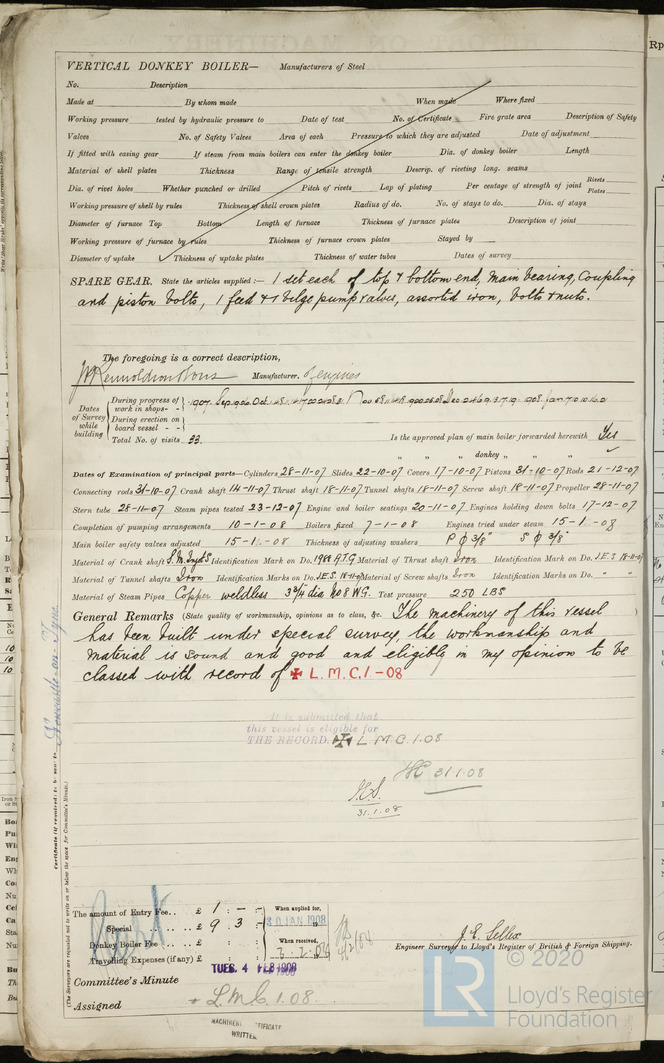 VERTICAL DONKEY BOILER— Manufacturers of Steel
No. Description
Made at By whom made When made Where fixed
Working pressure tested by hydraulic pressure to Date of test No. of Certificate Fire grate area Description of Safety
Valves No. of Safety Valves Area of each Pressure to which they are adjusted Date of adjustment
If fitted with easing gear If steam from main boilers can enter the donkey boiler Dia. of donkey boiler Length
Material of shell plates Thickness Range of tensile strength Descrip. of riveting long. seams
Dia. of rivet holes Whether punched or drilled Pitch of rivets Lap of plating Per centage of strength of joint Rivets Plates
Working pressure of shell by rules Thickness of shell crown plates Radius of do. No. of stays to do. Dia. of stays
Diameter of furnace Top Bottom Length of furnace Thickness of furnace plates Description of joint
Working pressure of furnace by rules Thickness of furnace crown plates Stayed by
Diameter of uptake Thickness of uptake plates Thickness of water tubes Dates of survey
SPARE GEAR. State the articles supplied:— 1 set each of top & bottom end, main bearing, Coupling
and piston bolts, 1 feed & 1 bilge pump valves, assorted iron, bolts & nuts.
The foregoing is a correct description,
Manufacturer. of engines
Dates of Survey while building
During progress of work in shops - - 1907 Sep.
During erection on board vessel - -
Total No. of visits 33. Is the approved plan of main boiler forwarded herewith Yes
" " " donkey " " "
Dates of Examination of principal parts—Cylinders 28-11-07 Slides 22-10-07 Covers 17-10-07 Pistons 31-10-07 Rods 21-12-07
Connecting rods 31-10-07 Crank shaft 14-11-07 Thrust shaft 18-11-07 Tunnel shafts 18-11-07 Screw shaft 18-11-07 Propeller 28-11-07
Stern tube 28-11-07 Steam pipes tested 23-12-07 Engine and boiler seatings 20-11-07 Engines holding down bolts 17-12-07
Completion of pumping arrangements 10-1-08 Boilers fixed 7-1-08 Engines tried under steam 15-1-08
Main boiler safety valves adjusted 15-1-08 Thickness of adjusting washers P 3/8" S 3/8"
Material of Crank shaft S.M. Ingots Identification Mark on Do. A.T.G Material of Thrust shaft Iron Identification Mark on Do. J.E.S 18-11-07
Material of Tunnel shafts Iron Identification Marks on Do. J.E.S. 18-11-07 Material of Screw shafts Iron Identification Marks on Do. " "
Material of Steam Pipes Copper weldless 3¾ dia No 8 WG. Test pressure 250 LBS
General Remarks (State quality of workmanship, opinions as to class, &c. The machinery of this vessel
has been built under special survey, the workmanship and
material is sound and good and eligible in my opinion to be
classed with record of ✠ L.M.C. 1-08
It is submitted that
this vessel is eligible for
THE RECORD. ✠ L M C 1.08
31.1.08
31.1.08
Newcastle-on-Tyne
The amount of Entry Fee.. £ 1 : - : When applied for,
Special £ 9 : 3 : - 30 JAN 1908
Donkey Boiler Fee £ When received,
Travelling Expenses (if any) £
TUES. 4 FEB 1908
J. E. Sellex
Engineer Surveyor to Lloyd's Register of British & Foreign Shipping.
Committee's Minute
Assigned + L.M.C. 1.08.
MACHINERY CERTIFICATE
WRITTEN
LR
© 2020
Lloyd's Register
Foundation